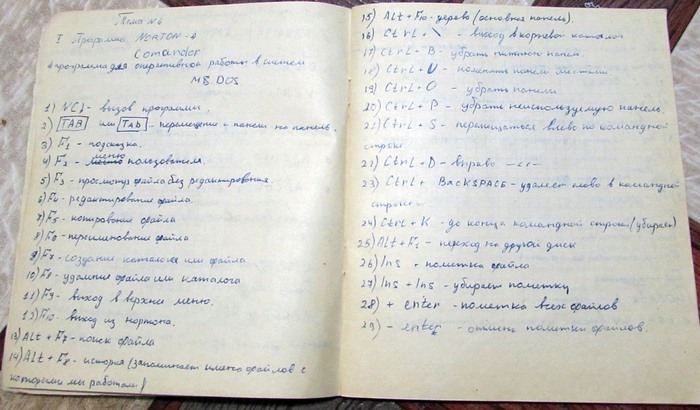 Тема №4
I Программа NORTON-a
Comandor
программа для оперативной работы в систем
MS.DOS
1) NC↓ - вызов программы.
2) TAB или Tab - перемещение с панели на панель.
3) F1 - подсказка.
4) F2 - меню пользователя.
5) F3 - просмотр файла без редактирования.
6) F4 - редактирование файла.
7) F5 - копирование файла
8) F6 - переименование файла
9) F7 - создание каталога или файла
10) F8 - удаление файла или каталога
11) F9 - выход в верхнее меню.
12) F10 - выход из нортона.
13) Alt + F7 - поиск файла
14) Alt + F8 - история (запоминает имена файлов с
которыми мы работали)
15) Alt + F10 - дерево (основная панель).
16) Ctrl + \ - выход в корневой каталог
17) Ctrl + B - убрать нижнюю панель.
18) Ctrl + U - поменять панели местами
19) Ctrl + O - убрать панели
20) Ctrl + P - убрать неиспользуемую панель.
21) Ctrl + S - перемещаться влево по командной
строке.
22) Ctrl + D - вправо -//-
23) Ctrl + BACKSPACE - удаляет слово в командной
строке
24) Ctrl + K - до конца командной строки (убирает)
25) Alt + F1 - переход на другой диск
26) Ins - пометка файла
27) Ins + Ins - убирает пометку
28) + enter - пометка всех файлов
29) - enter - отмена пометки файлов.